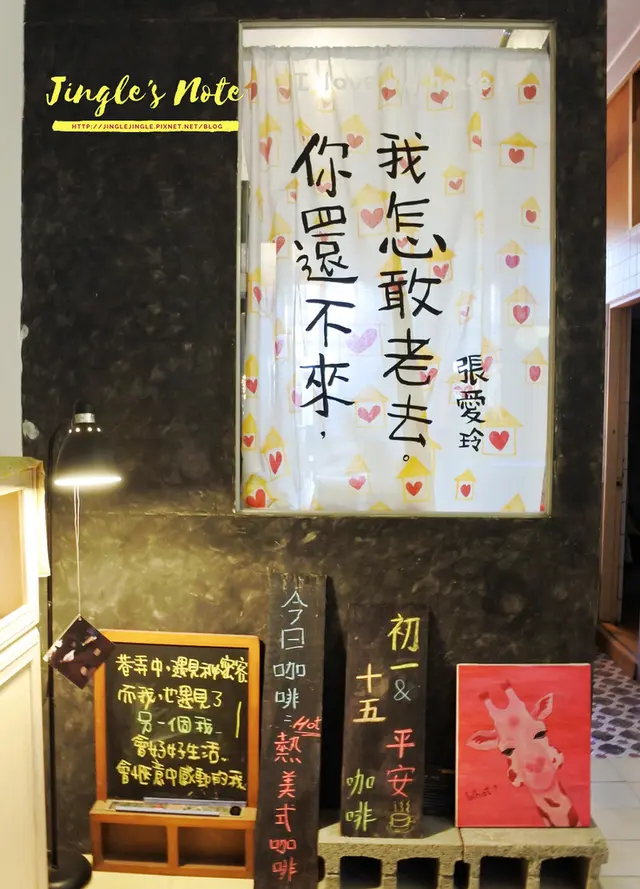 Jingle's Note
HTTP://JINGLEJINGLE.PIXNET.NET/BLOG
I love
你還不來，
我怎敢老去。
張愛玲
巷弄中，遇見
而我，也遇見了
另一個我
會好好生活、
會愜意中感動的我
今日咖啡：
Hot
熱美式咖啡
初一&
十五
平安
咖啡
What?